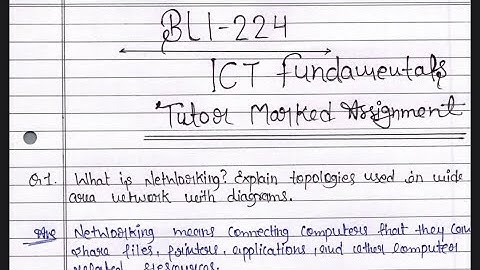 BLI-224
ICT fundamentals
Tutor Marked Assignment
Q1. What is Networking? Explain topologies used in wide
area network with diagrams.
Ans Networking means connecting computers that they can
share files, printers, applications, and other computer
related resources.